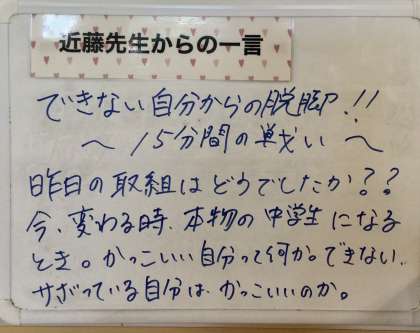 近藤先生からの一言
できない自分からの脱脚!!
～15分間の戦い～
昨日の取組はどうでしたか??
今、変わる時、本物の中学生になる
とき。かっこいい自分って何か。できない、
サボっている自分は、かっこいいのか。